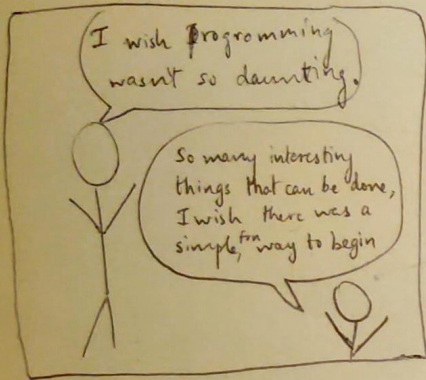 I wish Programming
wasn't so daunting.
So many interesting
things that can be done,
I wish there was a
simple, fun way to begin